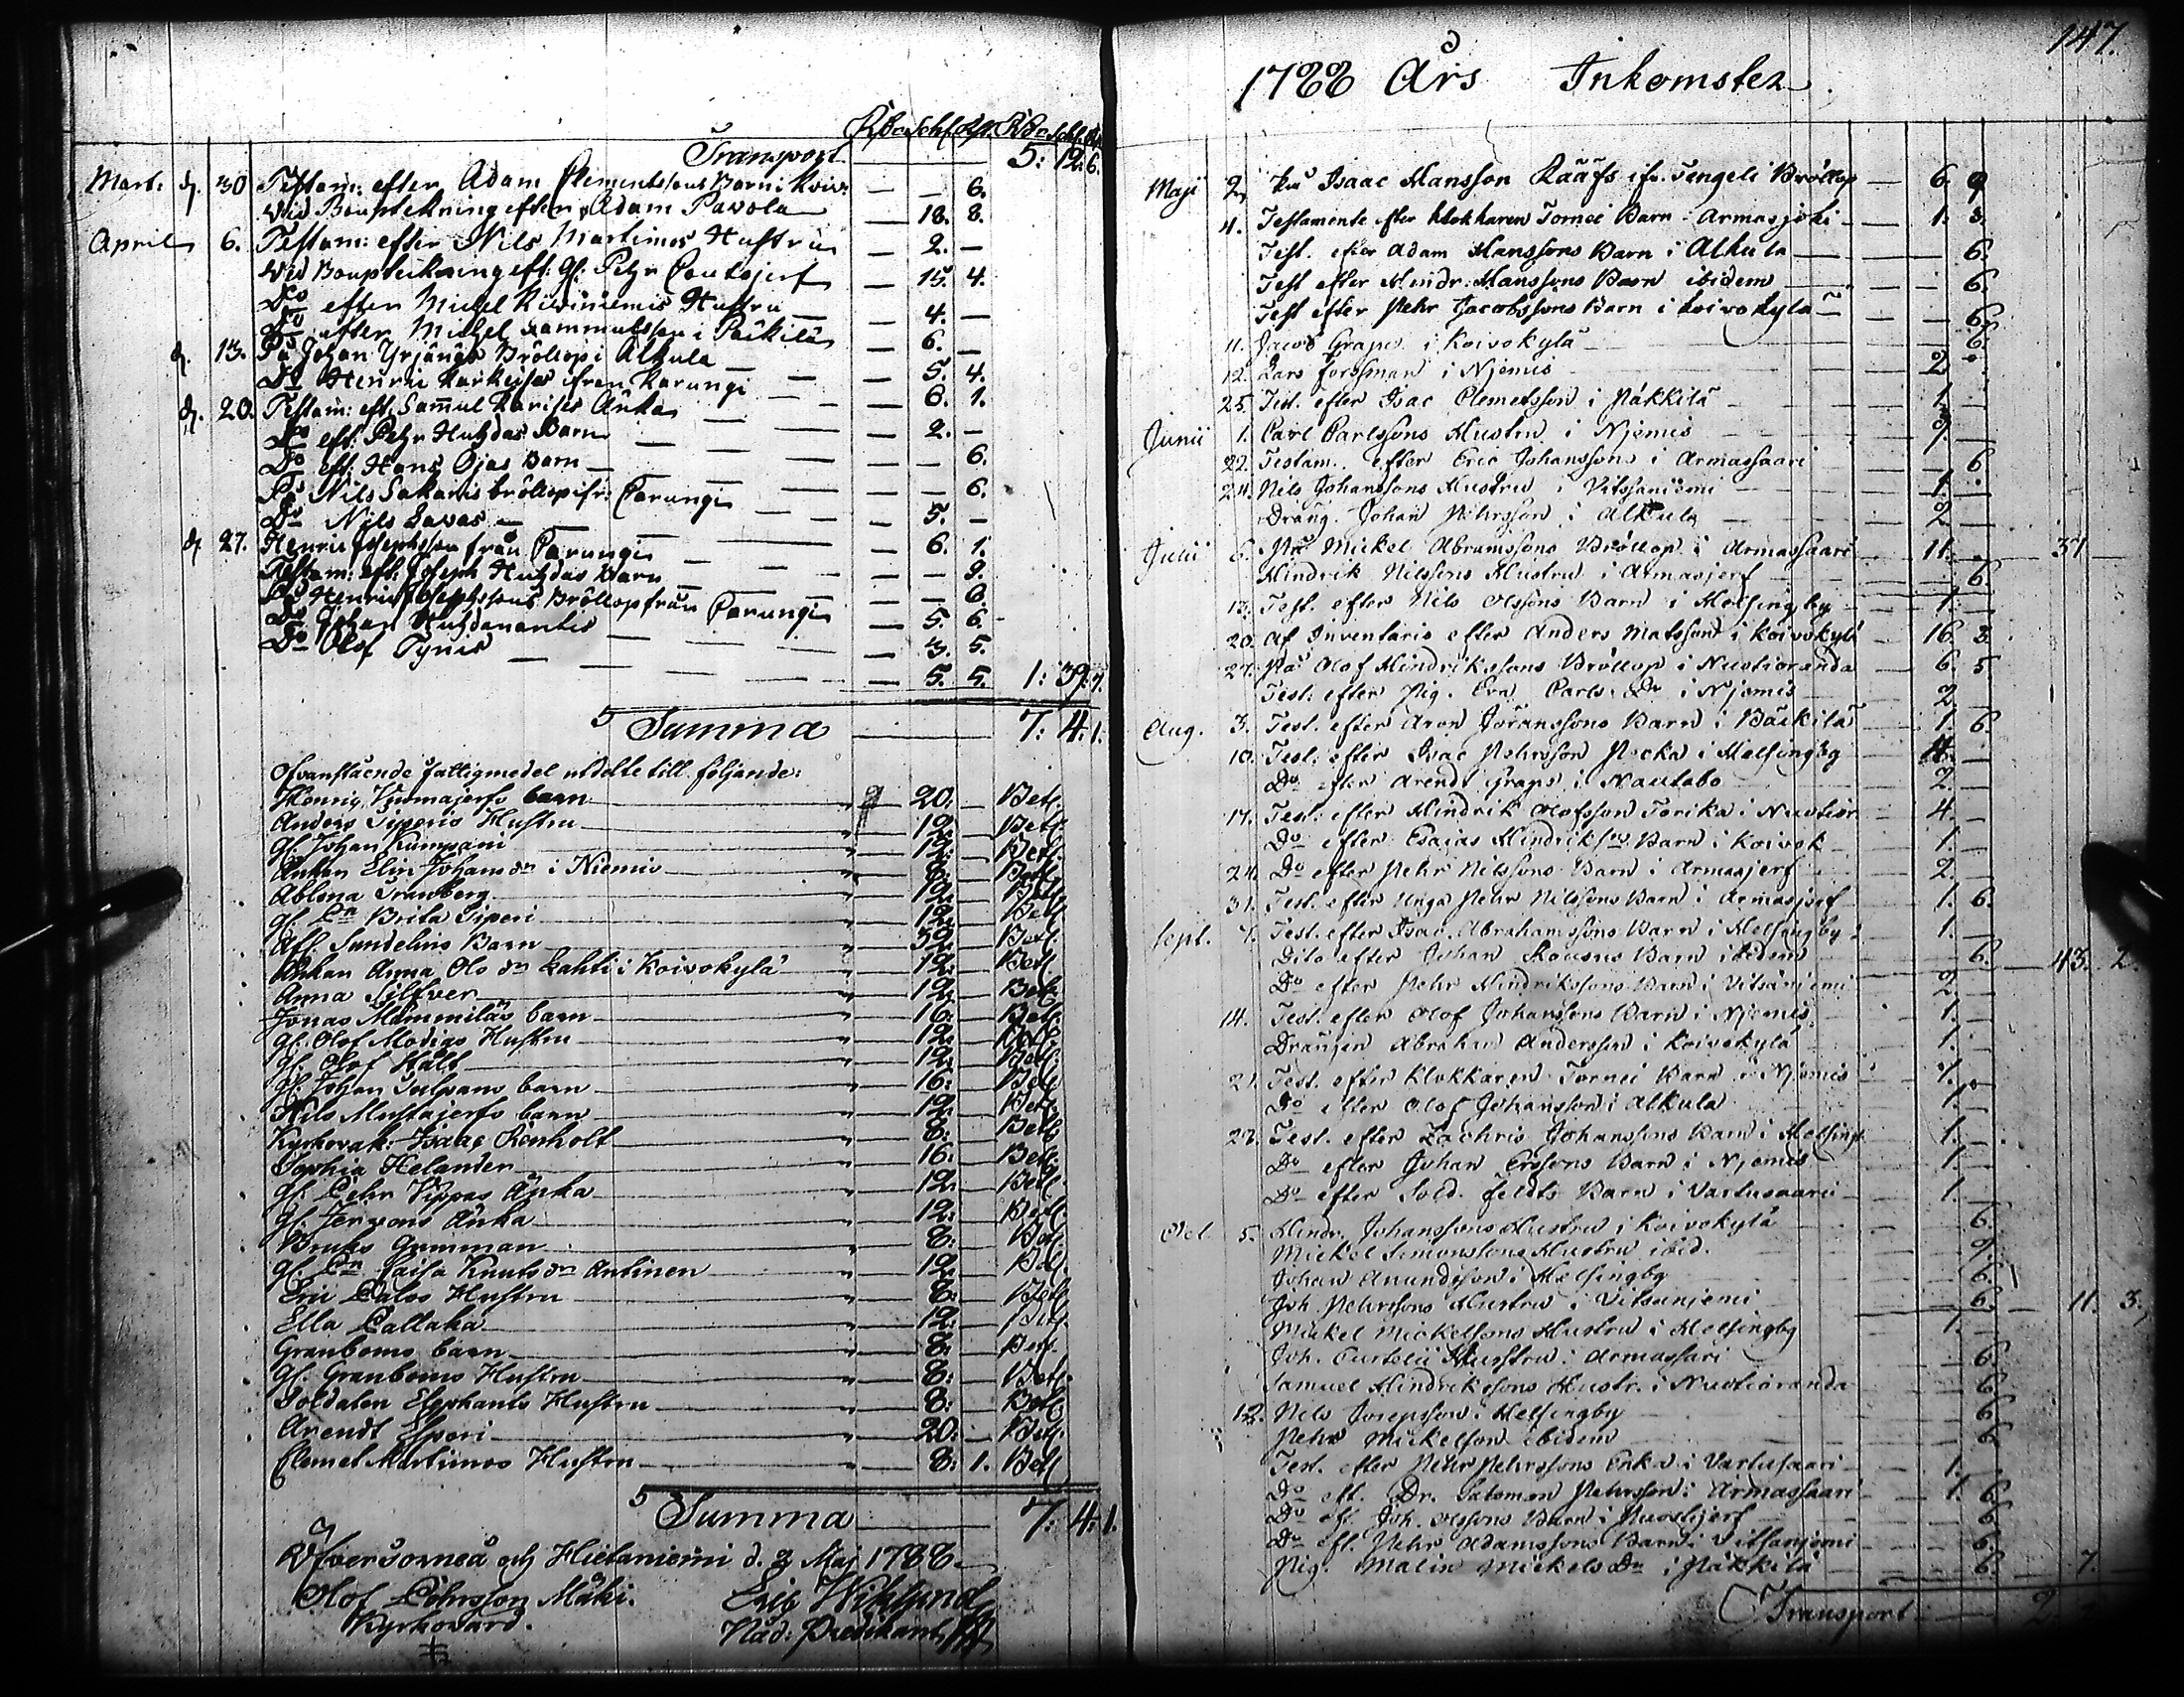 Rdr Schl. Rst. Rdr Schl. Rst.
Transport 5: 12: 6.
Mart: d. 30 Testam: efter Adam Clementssons Barn i Koiv: — — 6.
Wid Bouptekning efter Adam Pavola — 18. 8.
April 6. Testam: efter Nils Martimos Hustru — 2. —
Wid Bouptekning eft: gl: Petr Poutojerf — 15. 4.
Do efter Michel Kuivaniemis Hustru — 4. —
Do efter Michel Sammuelsson i Päkkilä — 6. —
d. 13. På Johan Yrjänäs Bröllop i Alkula — 5. 4.
Do Henric Karkeises ifrån Karungi — 6. 1.
d. 20. Testam: eft: Samuel Karises Änka — 2. —
Do eft: Petr Huhdas Barn — — 6.
Do eft: Hans Ojas Barn — — 6.
På Nils Sakaris bröllop ifr: Carungi — 5. —
Do Nils Lavas — 6. 1.
d 27. Henric Josephsson från Carungi — — 9.
Testam: eft: Joseph Huhdas Barn — — 6.
På Henric Josephssons Bröllop från Carungi — 5. 6.
Do Johan Huhdanantis — 3. 5.
Do Olof Tynis — 5. 5. 1: 39: 7.
Summa 7: 4: 1.
Ofvanstående fattigmedel utdelte till följande:
Henric Vuomajerfs barn 20: — Bet.
Anders Siperis Hustru 12: — Bet.
gl. Johan Kumpani 12: — Bet.
Änkan Elin Johans dr i Niemis 6: — Bet.
Ablona Granberg 12: — Bet.
gl. Brita Siperi 12: — Bet.
Afl. Sundelins Barn 32: — Bet.
Änkan Anna Olo dr Lahti i Koivokylä 12: — Bet.
Anna Silfver 12: — Bet.
Jonas Mämmiläs barn 16: — Bet.
gl. Olof Modigs Hustru 12: — Bet.
gl. Olof Hält 12: — Bet.
gl. Johan Tulpans barn 16: — Bet.
Nils Mustajerfs barn 12: — Bet.
Kyrkovak: Isaac Rönholt 8: — Bet.
Sophia Helander 16: — Bet.
gl. Pehr Vippas Änka 12: — Bet.
gl. Jerpons Änka 12: — Bet.
Bruks Gumman 8: — Bet.
gl. Caisa Knuts dr Antinen 12: — Bet.
Eric Palos Hustru 8: — Bet.
Ella Pallaka 12: — Bet.
Granboms barn 8: — Bet.
gl. Granboms Hustru 8: — Bet.
Soldaten Elephants Hustru 8: — Bet.
Arendt Esperi 20: — Bet.
Clemet Martimos Hustru 8: 1. Bet.
Summa 7: 4: 1.
Öfvertorneå och Hietaniemi d. 2 Maj 1788.
Olof Pehrsson Mäki. Eric Wiklund
Kyrkovärd. Nåd: Predikant
147.
1788 Års Inkomster
Maji 2, På Isaac Hansson Rääfs ifr. Tengeli Bröllop — 6. 9
4. Testamente efter klokkaren Tornei Barn Armasjoki — 1. 3.
Test. efter Adam Hanssons Barn i Alkula — 6.
Test efter Hindr: Hanssons Barn ibidem — 6.
Test efter Pehr Jacobssons Barn i Koivokylä — 6.
11. Jacob Grape i Koivokylä — 6.
12. Lars Forssman i Njemis 2 —
25. Test. efter Isac Clemetsson i Päkkilä 1 —
Junii 1. Carl Carlssons Hustru i Njemis 9. —
22. Testam. efter Eric Johansson i Armassaari — 6.
24. Nils Johanssons Hustru i Vitsaniemi 1. —
Dräng. Johan Pehrsson i Alkula 2 —
Julii 6. På Mickel Abramssons Bröllop i Armassaari 11. — 31
Hindrik Nilssons Hustru i Armasjerf — 6.
13. Test. efter Nils Olssons Barn i Helsingby 1. —
20. Af Inventaris efter Anders Matsson i Koivokylä 16. 3.
27. På Olof Hindrikssons Bröllop i Nuotioranda 6. 5.
Test: efter Pig. Eva Carls Dr i Njemis 2 —
Aug. 3. Test. efter Aron Joranssons Barn i Bäckilä 1. 6.
10. Test: efter Isac Pehrsson Nocka i Helsingby —
Do efter Arendt Graps i Nautabo 2. —
17. Test: efter Hindrik Olofsson Torika i Nuotior 4. —
Do efter Esaias Hindrikss Barn i Koivok 1. —
24. Do efter Pehr Nilssons Barn i Armasjerf 2. —
31. Test. efter Unga Pehr Nilssons Barn i Armasjerf 1. 6.
Sept. 7. Test. efter Isac Abrahamssons Barn i Helsingby 1. —
Dito efter Johan Rousus Barn ibidem — 6. 43. 2.
Do efter Pehr Hindrikssons Barn i Vitsaniemi 2 —
14. Test. efter Olof Johanssons Barn i Njemis 1. —
Drängen Abraham Andersson i Koivokylä 1. —
21. Test. efter Klokkaren Tornei Barn i Njemis 1. —
Do efter Olof Johansson i Alkula 1. —
27. Test. efter Zachris Johanssons Barn i Helsingb 1. —
Do efter Johan Erssons Barn i Njemis 1. —
Do efter Sold. Feldts Barn i Vartusaari 1. —
Oct 5. Hindr. Johanssons Hustru i Koivokylä 6.
Mickel Simonssons Hustru ibid. 9.
Johan Anundsson i Helsingby 6.
Joh. Pehrssons Hustru i Vitsanjemi 6. 11. 3.
Mickel Mickelssons Hustru i Helsingby 1. —
Joh. Curtelii Hustru i Armassari 6.
Samuel Hindrikssons Hustr. i Nuotioranda 6.
12. Nils Josepsson i Helsingby 6.
Pehr Mickelson ibidem 6.
Test. efter Pehr Pehrssons Enka i Vartusaari 1. —
Do eft. Dr. Salomon Pehrsson i Armassaari 1. 6.
Do eft. Joh. Olssons Barn i Puostijerf 6.
Do eft. Pehr Adamssons Barn i Vitsanjemi 6.
Pig. Malin Mickels Dr i Päkkilä 6. 7.
Transport 2